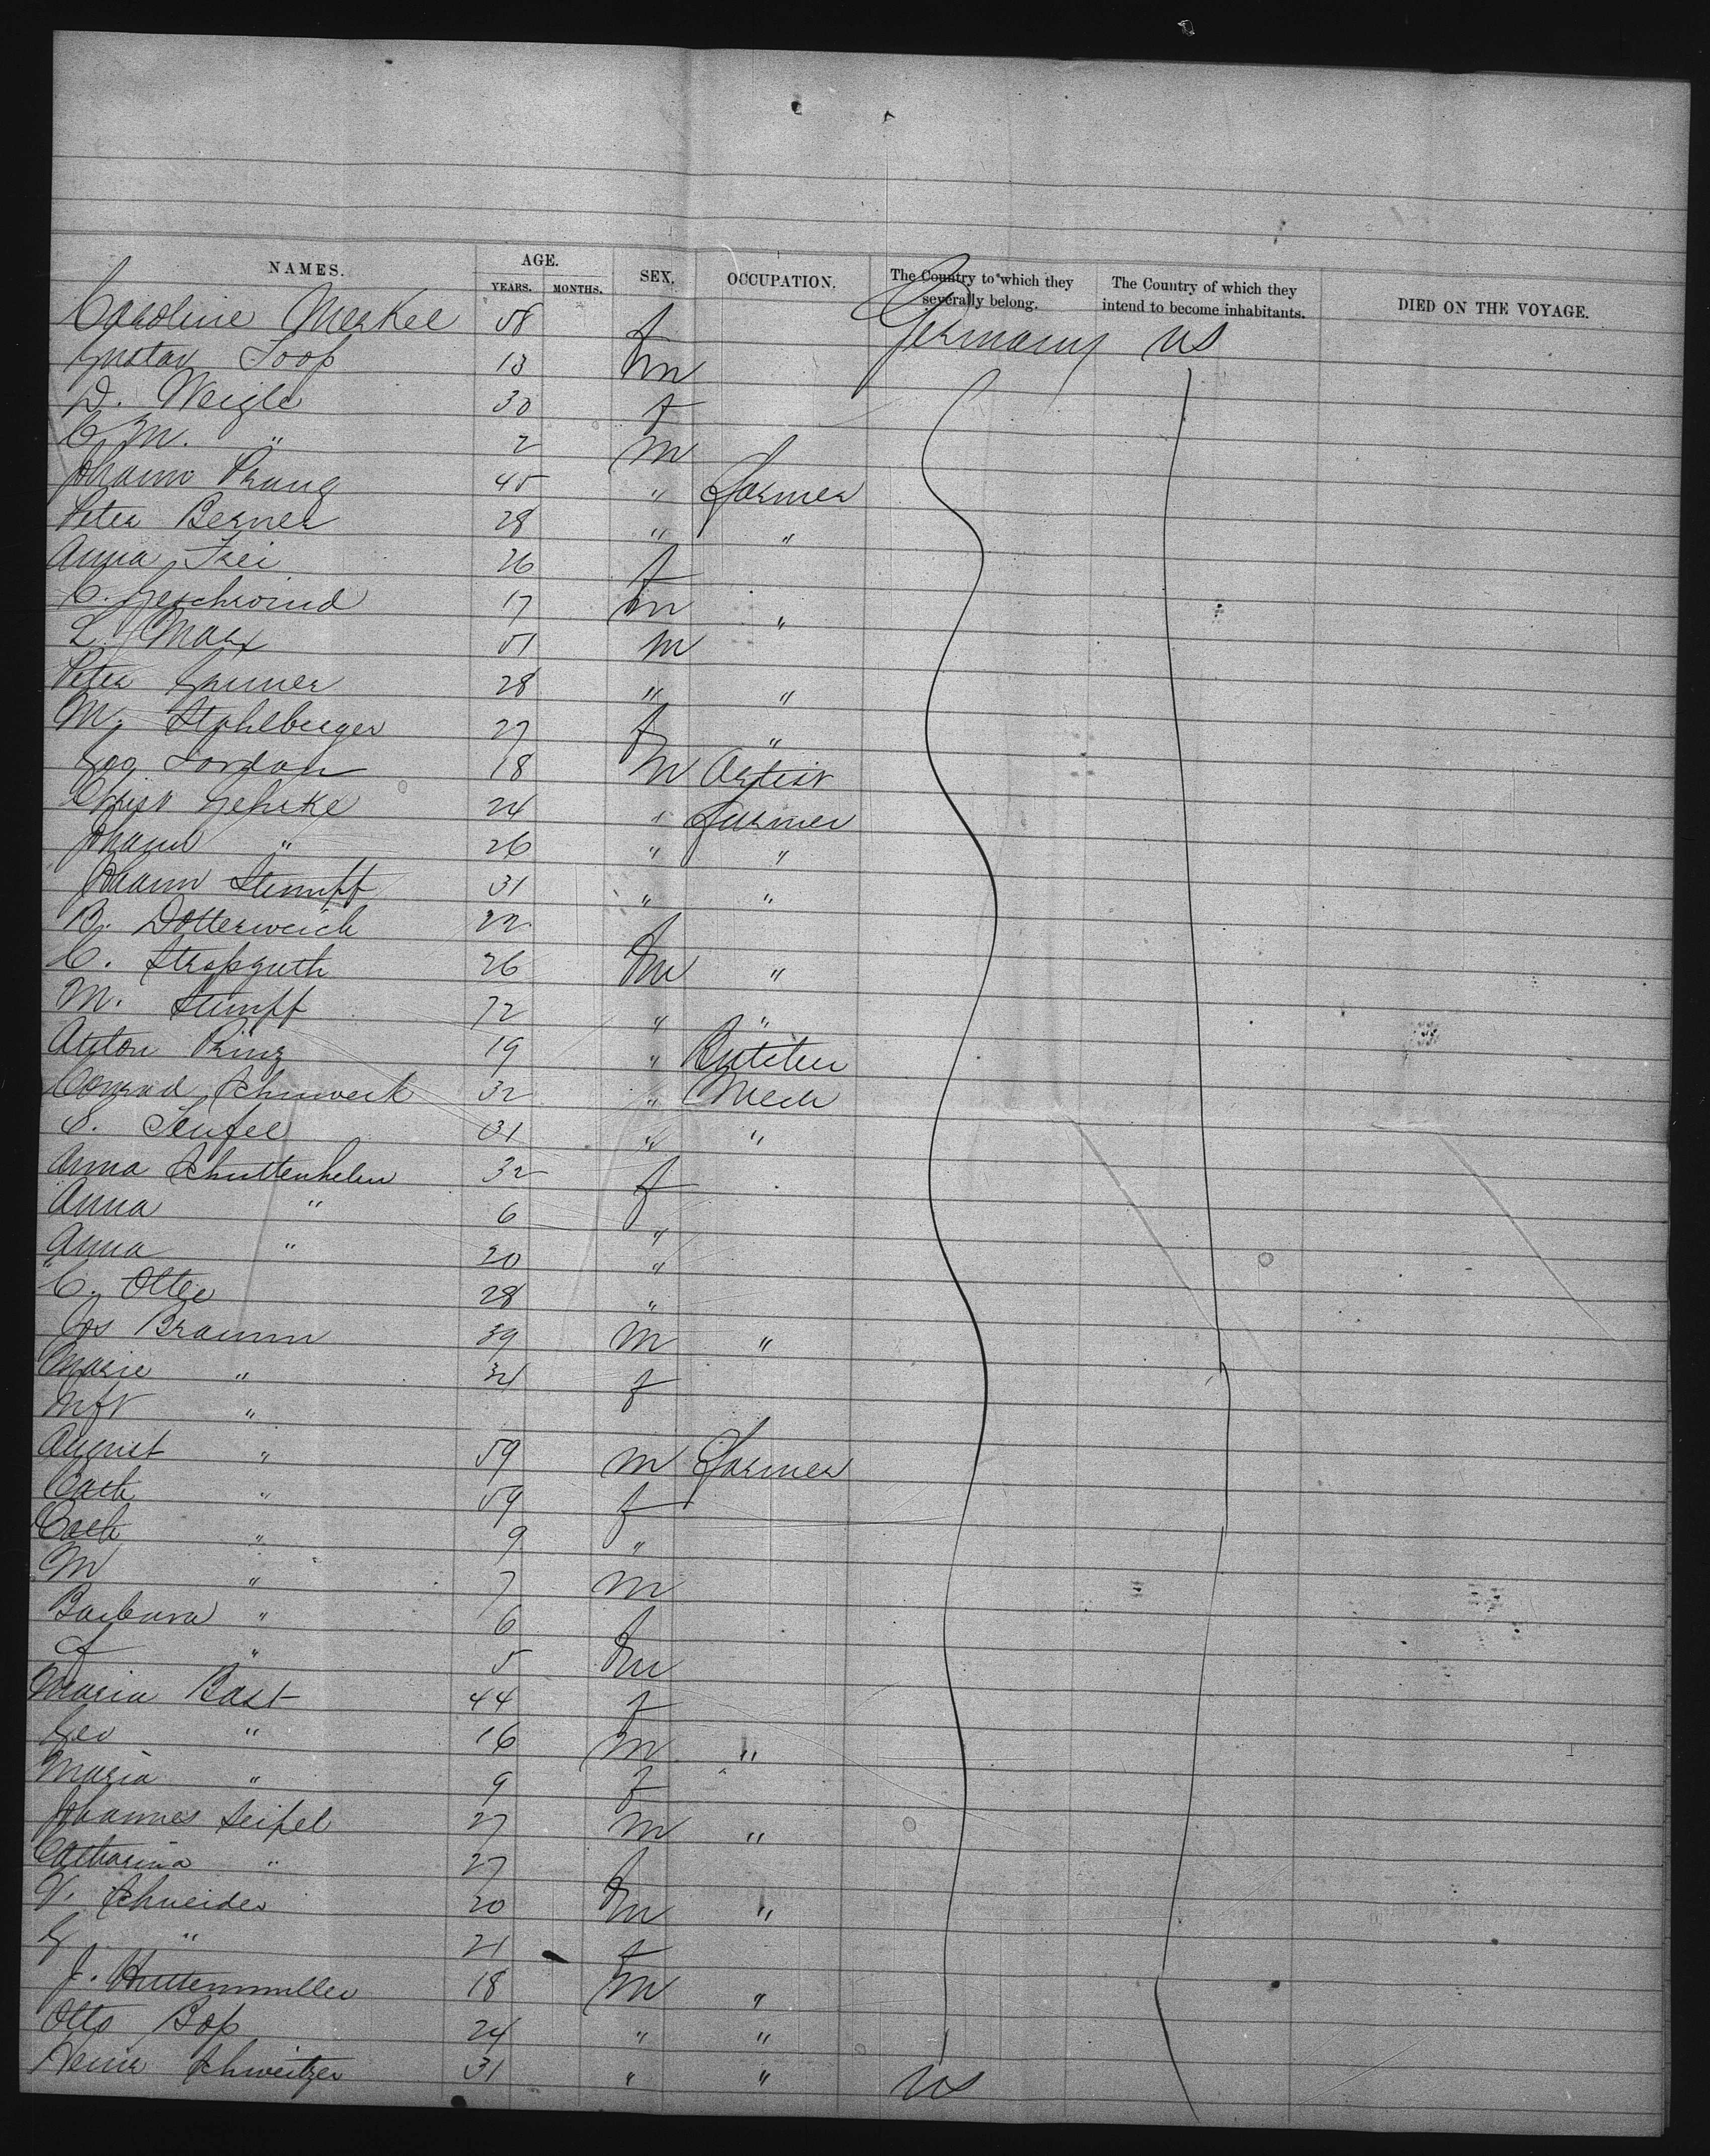 NAMES. AGE. SEX. OCCUPATION. The Country to which they severally belong. The Country of which they intend to become inhabitants. DIED ON THE VOYAGE.
YEARS. MONTHS.
Caroline Merkel 58 f Germany US
Gustav Loop 13 m
D. Weigle 30 f
C M. " 2 m
Johann Prang 45 " Farmer
Peter Berner 28 " "
Anna Frei 26 f
C. Geschwind 17 m "
L. Marx 51 m
Peter Gruner 28 " "
M. Stahlberger 27 f "
Geo Jordan 18 m Artist
Christ Gehrke 24 " Farmer
Johann " 26 " "
Johann Stumpf 31 " "
B. Dotterweich 22 f
C. 26 m "
M. Stumpf 72 " "
Anton Ring 19 " Butcher
Conrad Schuwerk 32 " Mech
S. Teufel 31 " "
Anna Schuttenhelm 32 f
Anna " 6 "
Anna " 20 "
C. Olter 28 "
Jos Braunn 39 m "
Marie " 34 f
Inft "
August " 59 m Farmer
Cath " 59 f
Cath " 9 "
M " 7 m
Barbara " 6 f
J " 5 m
Maria Bast 44 f
Geo " 16 m "
Maria " 9 f
Johannes Seipel 27 m "
Catharina " 27 f
V. Schneider 20 m "
G " 21 f
J. Huttenmuller 18 m "
Otto Bop 24 " "
Schweitzer 31 " " US